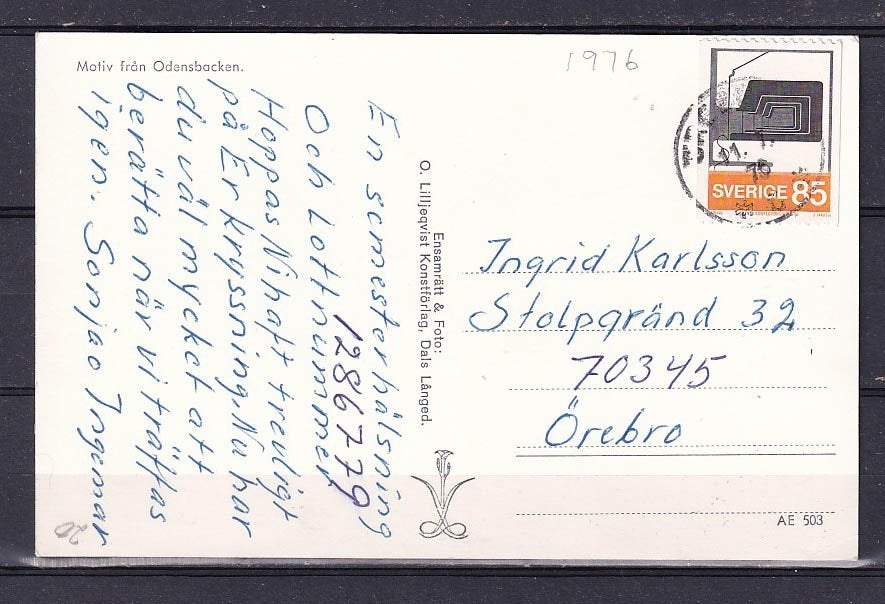 Motiv från Odensbacken.
1976
SVERIGE 85
En semesterhälsning
Och Lottnummer
1286779
Hoppas Ni haft trevligt
på Er kryssning. Nu har
du väl mycket att
berätta när vi träffas
igen. Sonja o Ingemar
Ensamrätt & Foto:
O. Lilljeqvist Konstförlag, Dals Långed.
Ingrid Karlsson
Stolpgränd 32
70345
Örebro
AE 503
20